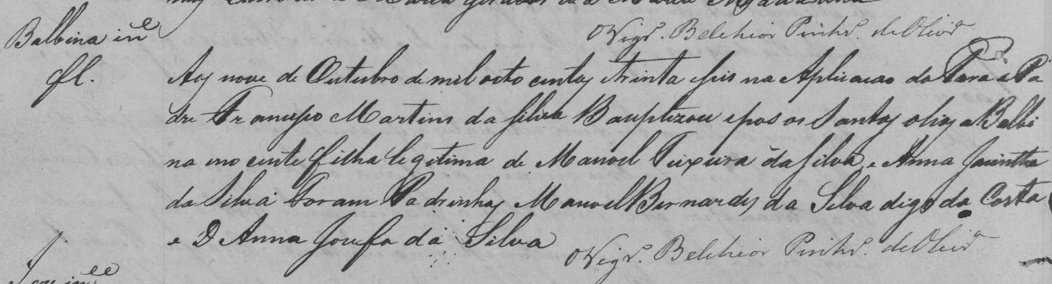 Balbina in.e
fl.
O Vigr.o Belchior Pinhr.o de Olivr.a
Aos nove de Outubro de mil oito centos e trinta e seis na Aplicacao do Para o Pa
dre Francisco Martins da Silva Bauptizou e pos os Santos olios a Balbi
na innocente filha legitima de Manoel Teixeira da Silva, e Anna Jacintha
da Silva Foram Padrinhos Manoel Bernardes da Silva digo da Costa
e D Anna Josefa da Silva
O Vigr.o Belchior Pinhr.o de Olivr.a